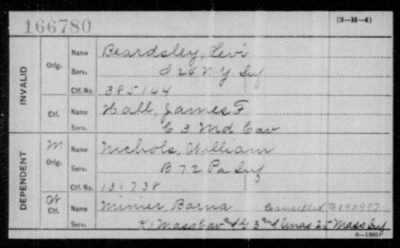 166780
(3-H-4)
INVALID
Orig.
Name Beardsley, Levi
Serv. I 24 N.Y. Inf
Ctf. No. 385144
Ctf.
Name Hall, James F
Serv. C 3 Md Cav
DEPENDENT
M
Orig.
Name Nichols, William
Serv. B 72 Pa Inf
Ctf. No. 131738
W
Ctf.
Name Minier Barna Cancelled
Serv. Mass Cav 3rd 25 Mass Inf